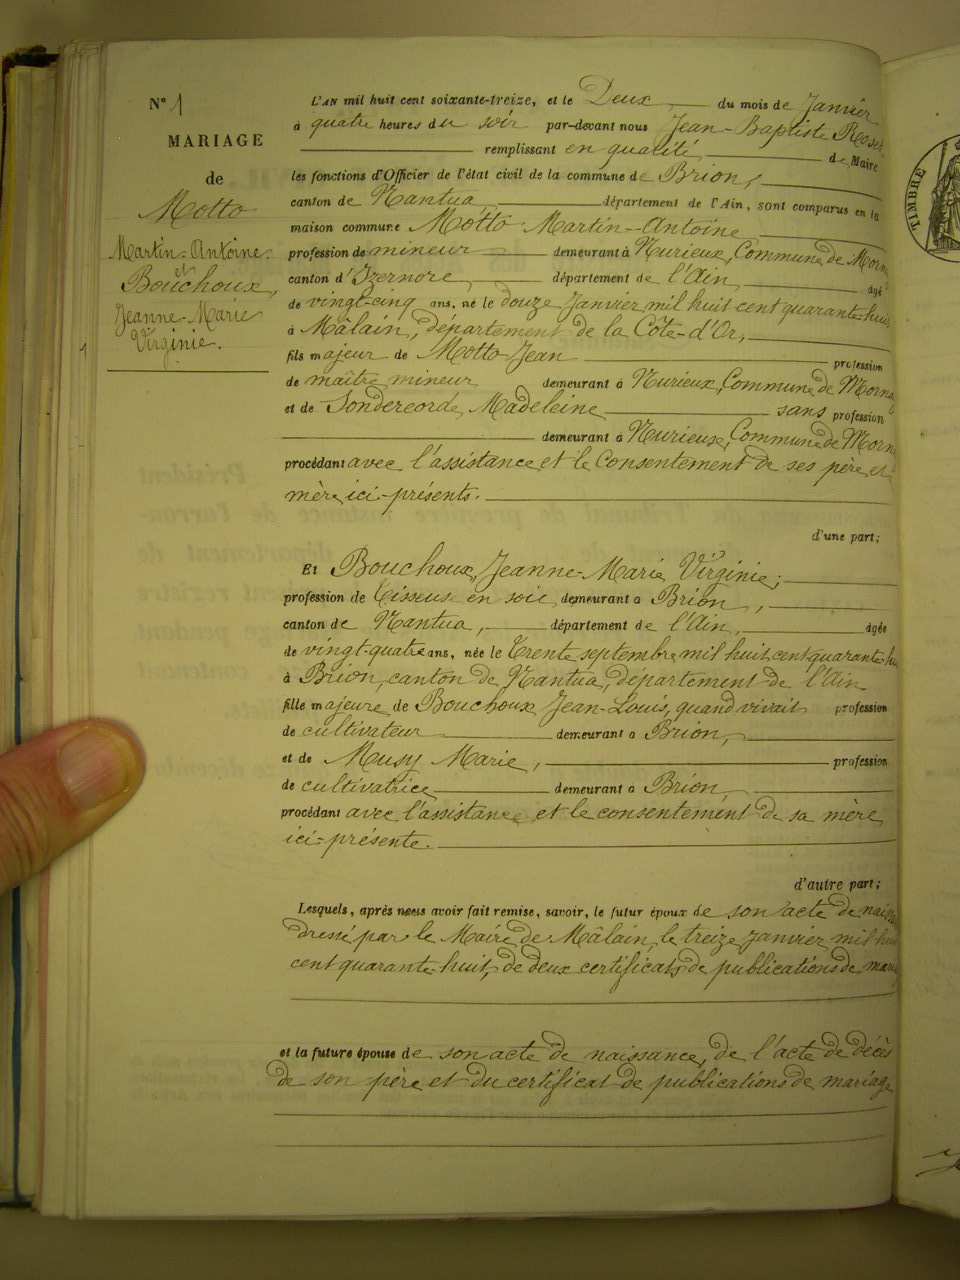 N° 1
MARIAGE
de
Motto
Martin-Antoine
et
Bouchoux,
Jeanne-Marie
Virginie.
1
L'AN mil huit cent soixante-treize, et le Deux du mois de Janvier
à quatre heures du soir par-devant nous Jean-Baptiste Roset
remplissant en qualité de Maire
les fonctions d'Officier de l'état civil de la commune de Brion,
canton de Nantua, département de l'Ain, sont comparus en la
maison commune Motto Martin-Antoine
profession de mineur demeurant à Nurieux, Commune de Morn
canton d'Izernore, département de l'Ain, agé
de vingt-cinq ans, né le douze Janvier mil huit cent quarante-huit
à Mâlain, département de la Côte-d'Or,
fils majeur de Motto Jean profession
de maître mineur demeurant à Nurieux, Commune de Morna
et de Madeleine sans profession
demeurant à Nurieux, Commune de Morn
procédant avec l'assistance et le consentement de ses père et
mère ici-présents.
d'une part;
Et Bouchoux, Jeanne-Marie Virginie;
profession de tisseuse en soie, demeurant a Brion,
canton de Nantua, département de l'Ain, agée
de vingt-quatre ans, née le trente septembre mil huit cent quarante-hu
à Brion, canton de Nantua, département de l'Ain
fille majeure de Bouchoux Jean-Louis, quand vivait profession
de cultivateur demeurant a Brion,
et de Musy Marie, profession
de cultivatrice demeurant a Brion,
procédant avec l'assistance et le consentement de sa mère
ici-présente.
d'autre part;
Lesquels, après nous avoir fait remise, savoir, le futur époux de son acte de naiss
dressé par le Maire de Mâlain, le treize Janvier mil huit
cent quarante-huit, de deux certificats de publications de maria
et la future épouse de son acte de naissance, de l'acte de décès
de son père et du certificat de publications de mariage
TIMBRE